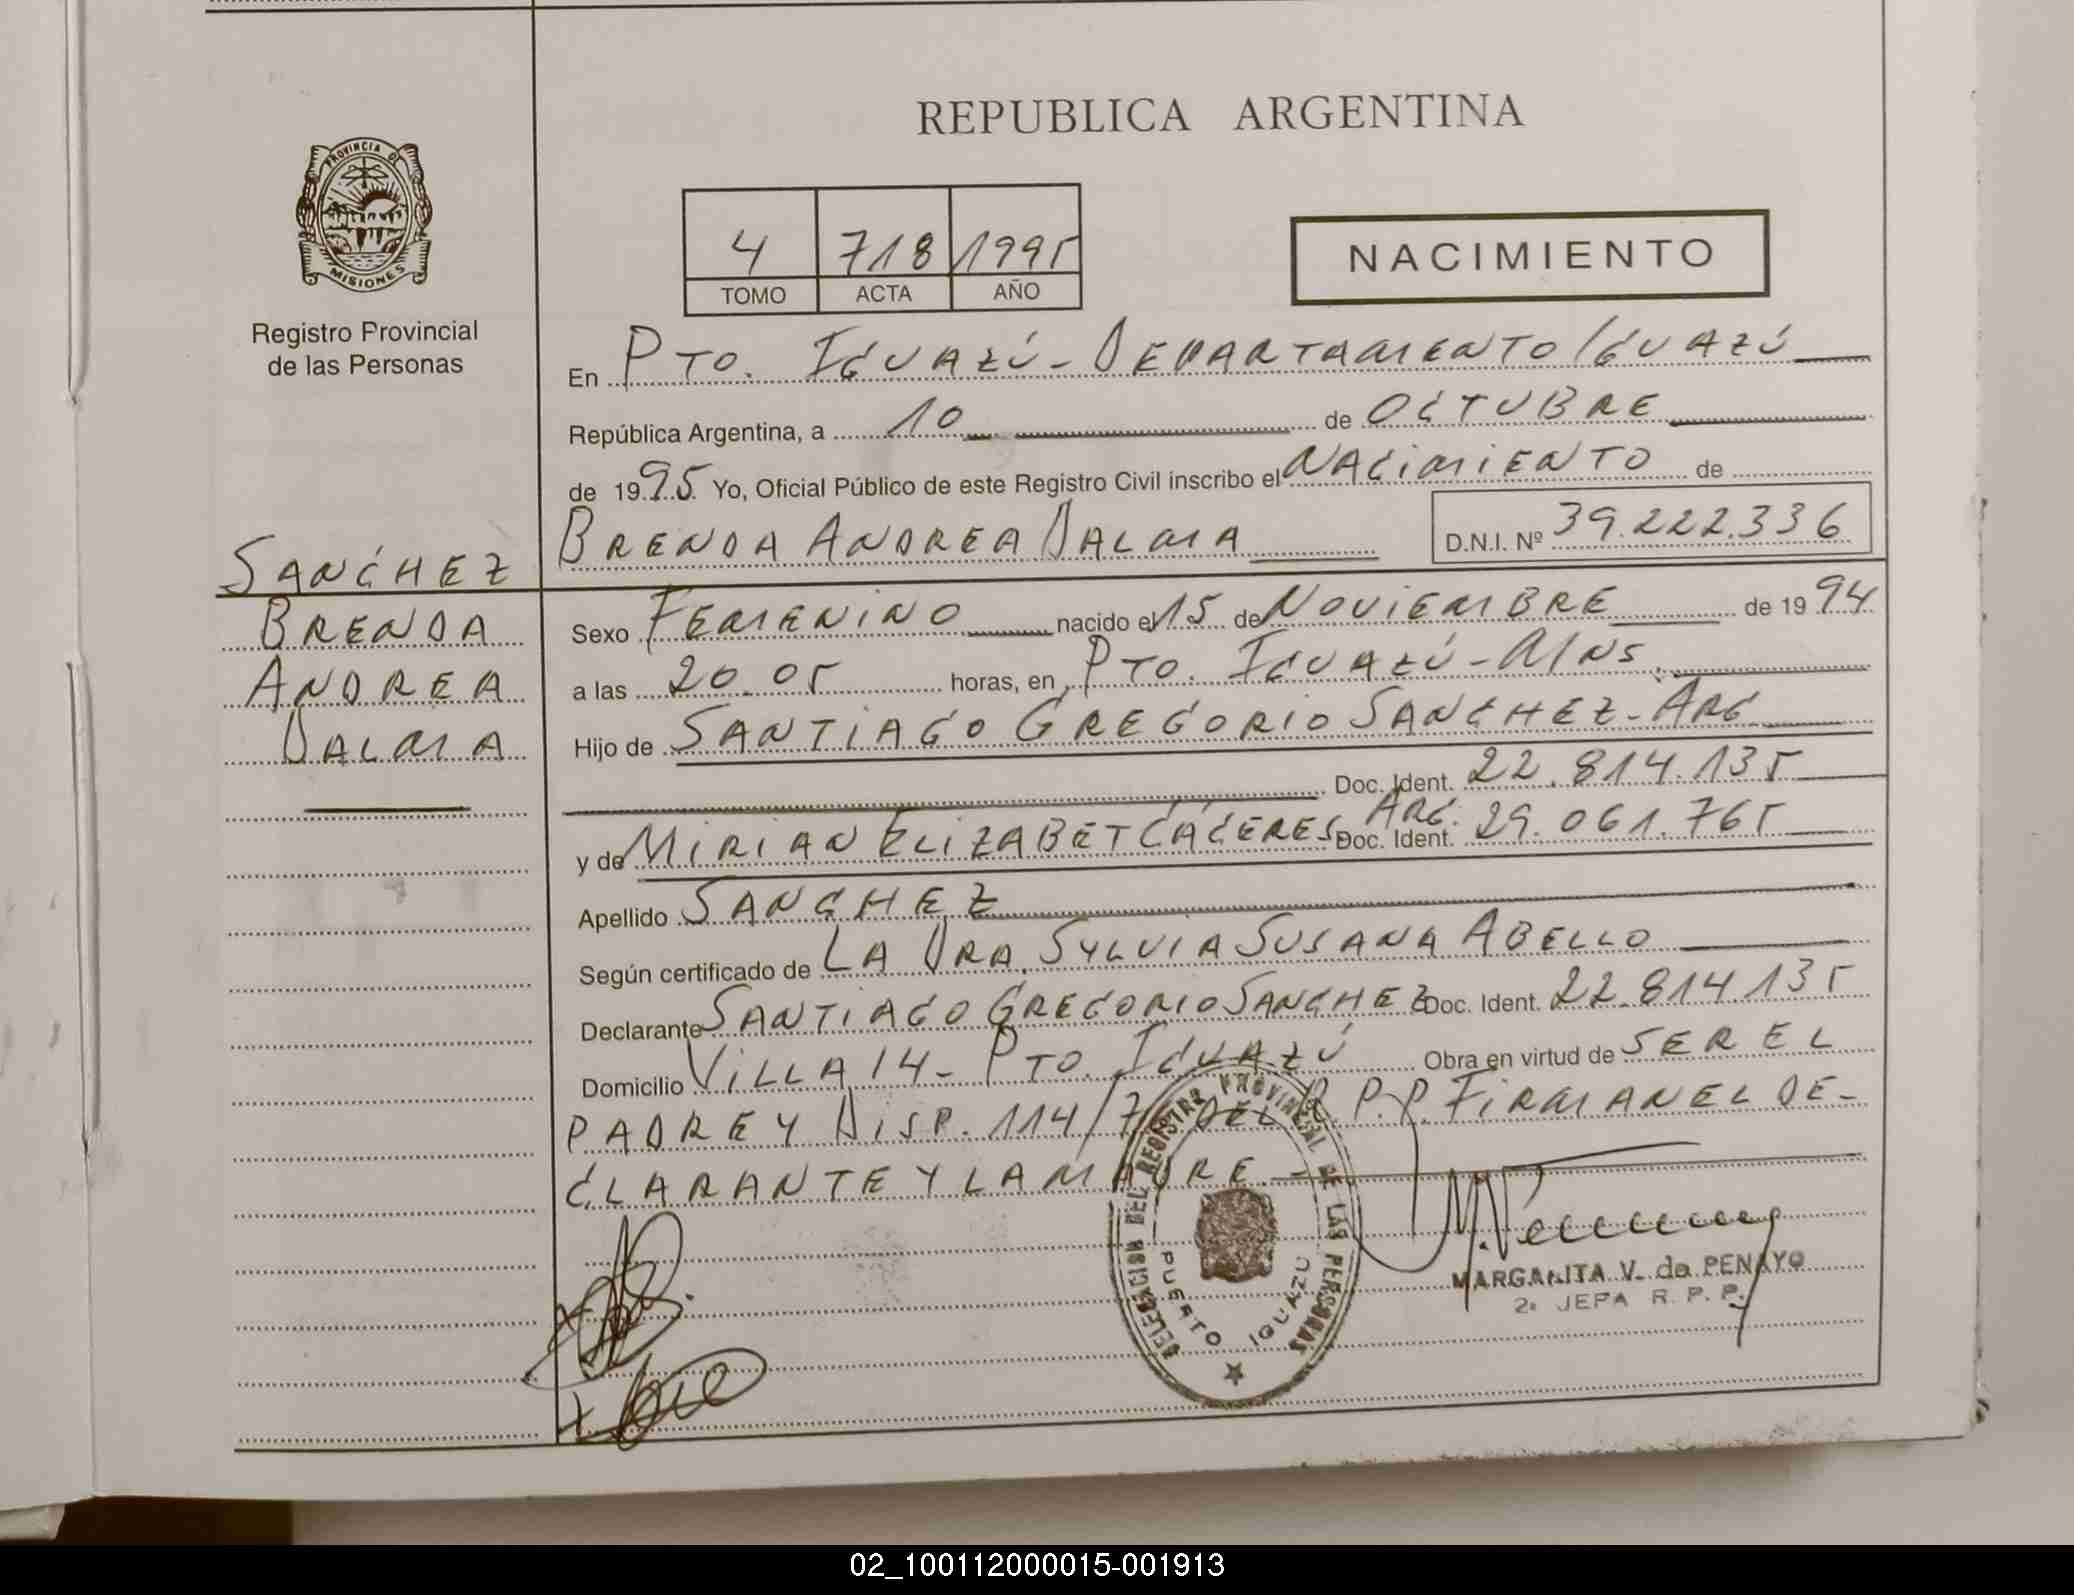 REPUBLICA ARGENTINA
PROVINCIA DE
MISIONES
Registro Provincial
de las Personas
4 718 1995
TOMO ACTA AÑO
NACIMIENTO
En PTO. IGUAZÚ - DEPARTAMENTO IGUAZÚ
República Argentina, a 10 de OCTUBRE
de 1995 Yo, Oficial Público de este Registro Civil inscribo el NACIMIENTO de
BRENDA ANDREA DALMA D.N.I. Nº 39.222.336
SANCHEZ
BRENDA
ANDREA
DALMA
Sexo FEMENINO nacido el 15 de NOVIEMBRE de 1994
a las 20.05 horas, en PTO. IGUAZÚ - MNS.
Hijo de SANTIAGO GREGORIO SANCHEZ - ARG
Doc. Ident. 22.814.135
y de MIRIAN ELIZABET CÁCERES ARG. Doc. Ident. 29.061.765
Apellido SANCHEZ
Según certificado de LA DRA. SYLVIA SUSANA ABELLO
Declarante SANTIAGO GREGORIO SANCHEZ Doc. Ident. 22.814.135
Domicilio VILLA 14 - PTO. IGUAZÚ Obra en virtud de SER EL
PADRE Y DISP. 114/ DEL R.P.P. FIRMAN EL DE-
CLARANTE Y LA MADRE. -
DELEGACION DEL REGISTRO PROVINCIAL DE LAS PERSONAS
PUERTO IGUAZU
MARGARITA V. de PENAYO
2ª JEFA R. P. P.
02_100112000015-001913